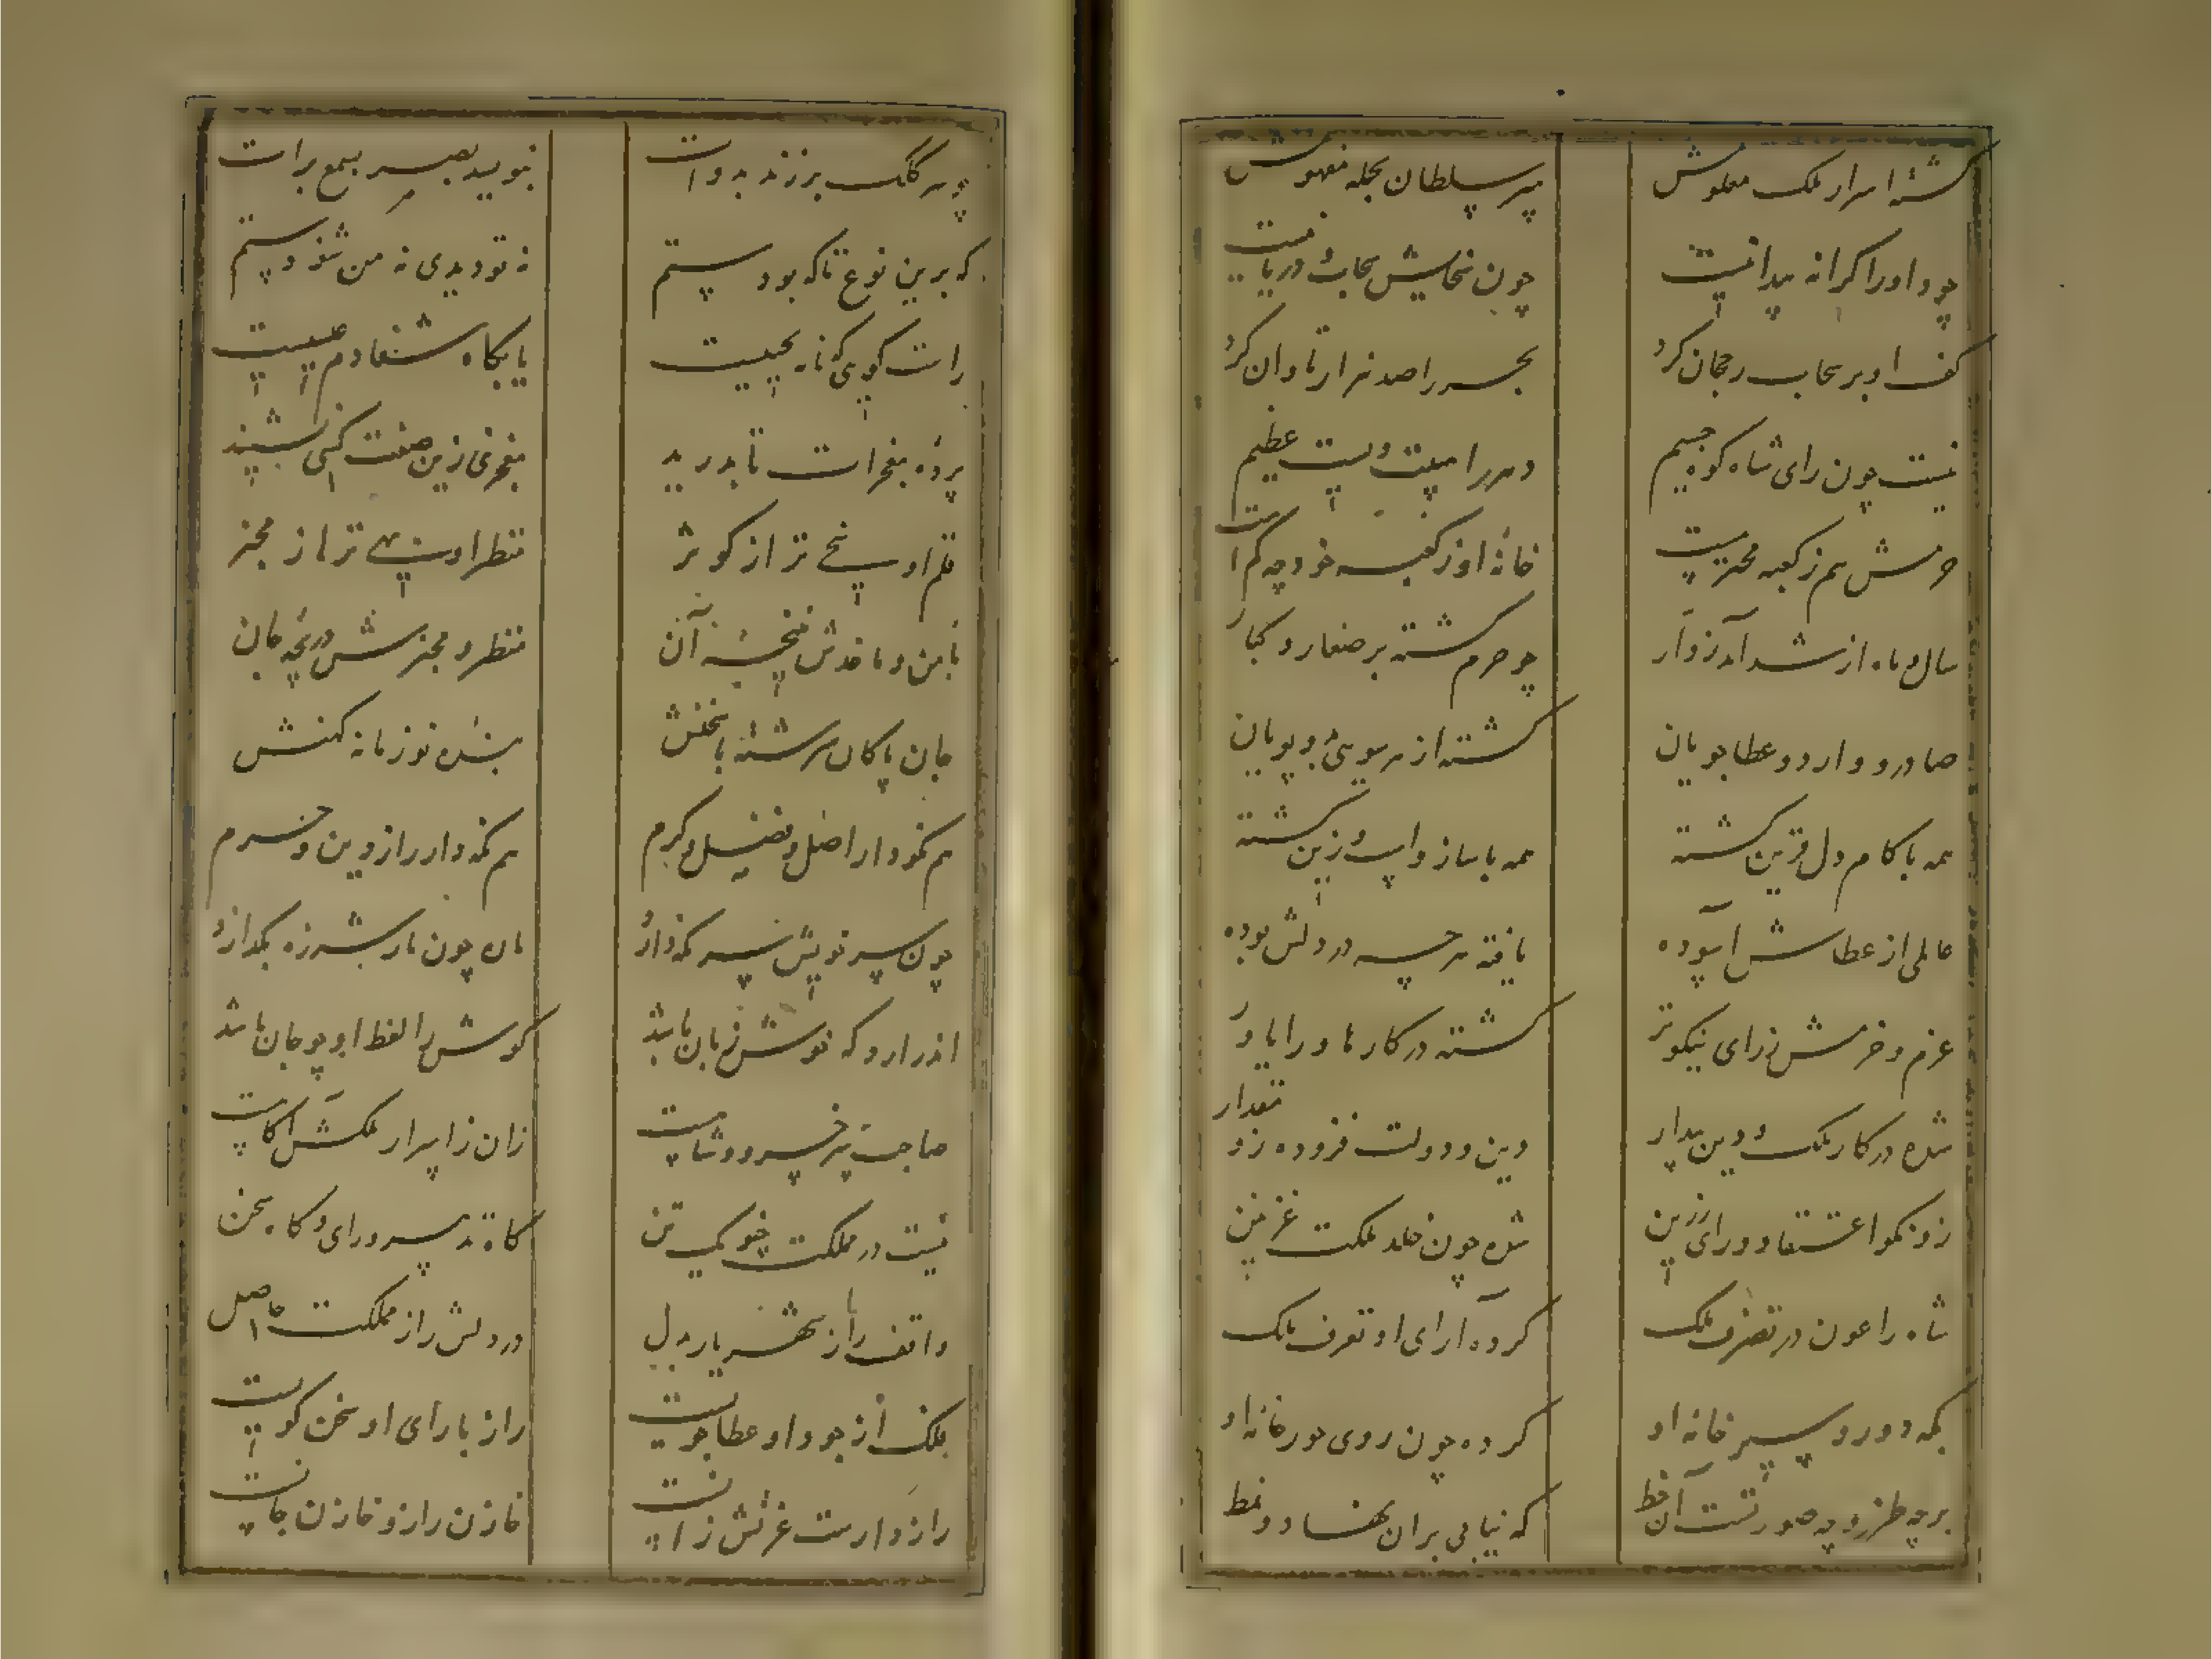 گشته اسرار ملک معلومش
سر سلطان بجمله مفهومش
جود او را کرانه پیدا نیست
چون سخایش سحاب و دریا نیست
کف او بر سحاب رجحان کرد
بحر را صد هزار تاوان کرد
نیست چون رای شاه کوه جسیم
دهر را هیبتیست عظیم
حرمش هم ز کعبه محترمست
خانه او ز کعبه خود چه کم است
سال و ماه از شد آمد زوار
چو حرم گشته بر صغار و کبار
صادر و وارد و عطا جویان
گشته از هر سوئی و پویان
همه با کام دل قرین گشته
همه با ساز و اسب و زین گشته
عالمی از عطاش آسوده
یافته هرچه در دلش بوده
عزم و حزمش ز رای نیکوتر
گشته در کارها ورا یاور
شده در کار ملک و دین بیدار
دین و دولت فزوده زو مقدار
زو نکو اعتقاد و رای رزین
شده چون خلد مملکت غزنین
شاه را عون در تصرف ملک
کرده آرای او تعرف ملک
بمه دو رو سپر خانه او
کرده چون روی حور خانه او
بر چه طرز و چه صورتست آن خط
که نیابی بران نهاد و نمط
چو سر کلک بر زند بدوات
بنوید بصیر بسمع برات
که برین نوع تا که بود ستم
نه تو دیدی نه من شنودستم
راست گویی که نامه عیسیست
یا بگاه شفا دم عیسیست
پرده معجزات تا بدرید
معجزی زین صفت کسی نشنید
قلم او سخی تر از کوثر
منظر اوست بهتر از مخبر
نامن و ماخدش نتیجه آن
منظر و مخبرش دریچه جان
جان پاکان سرشته با سخنش
بنده نو زمانه کهنش
هم نکودار اصل و فضل و کرم
هم نگه دار راز دین و حرم
چون سر نویش سر نگه دارد
مال چون مار شرزه بگذارد
اندر ارو که نوش زبان باشد
گوش را لفظ او چو جان باشد
صاحب سر خسرو و شاهست
زان ز اسرار ملکش آگاهست
نیست در مملکت چنو یک تن
گاه تدبیر و رای و گاه سخن
واقف راز شهریار بدل
در دلش راز مملکت حاصل
ملک از جود او عطا جویست
راز با رای او سخن گویست
رازدارست عزتش ز آنست
خازن راز و خازن جانست